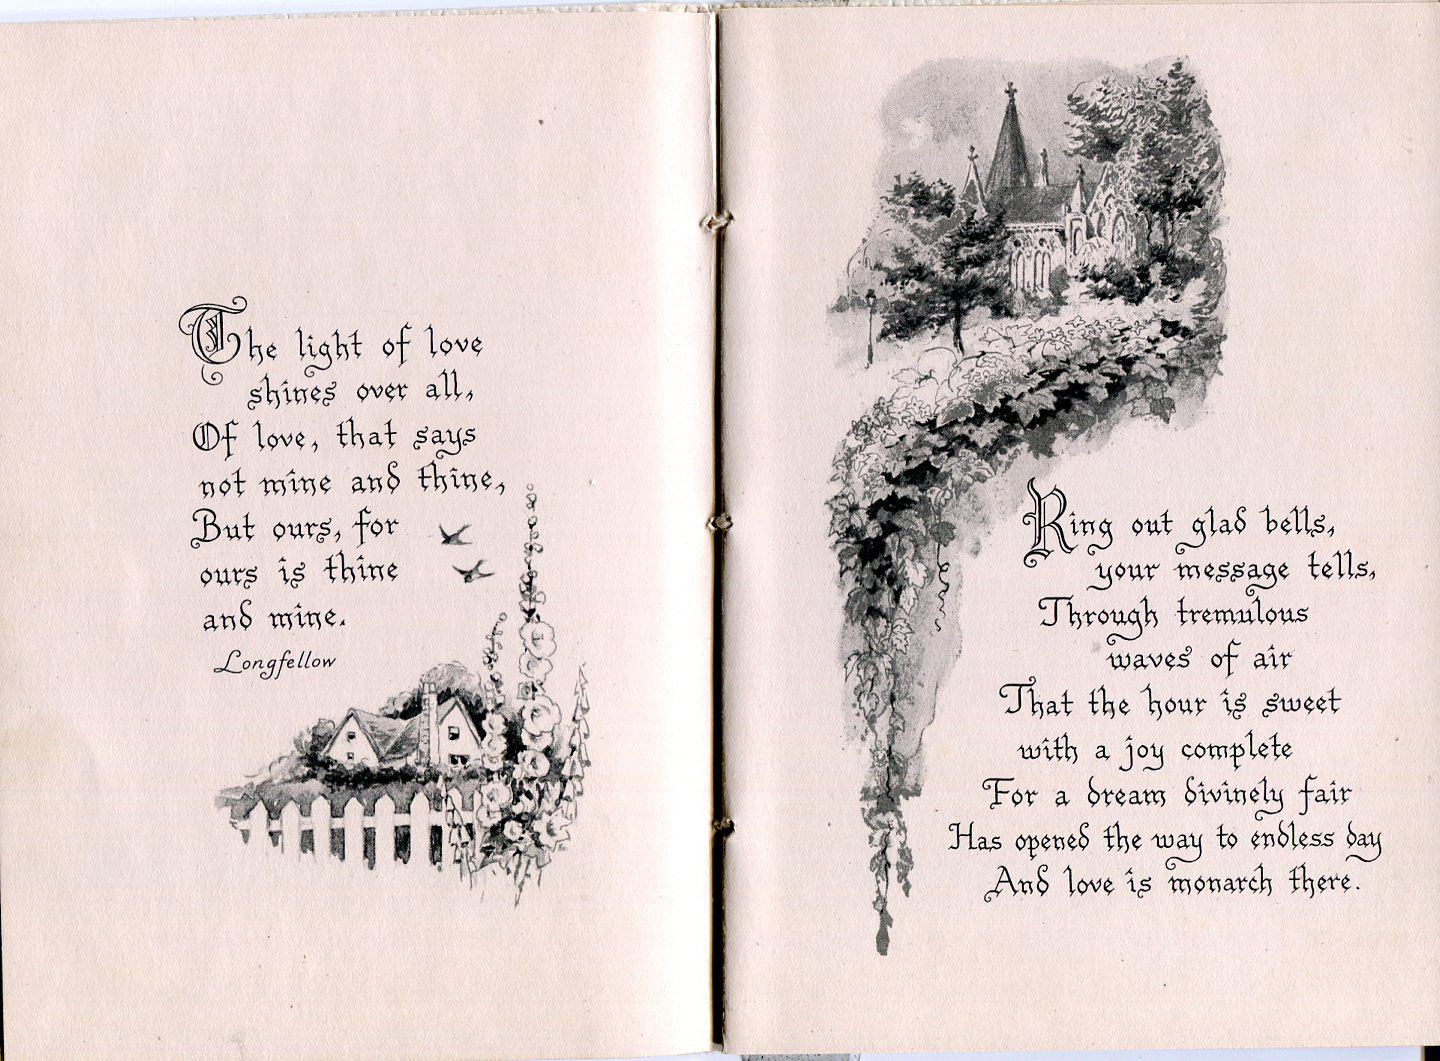 The light of love
shines over all,
Of love, that says
not mine and thine,
But ours, for
ours is thine
and mine.
Longfellow
Ring out glad bells,
your message tells,
Through tremulous
waves of air
That the hour is sweet
with a joy complete
For a dream divinely fair
Has opened the way to endless day
And love is monarch there.